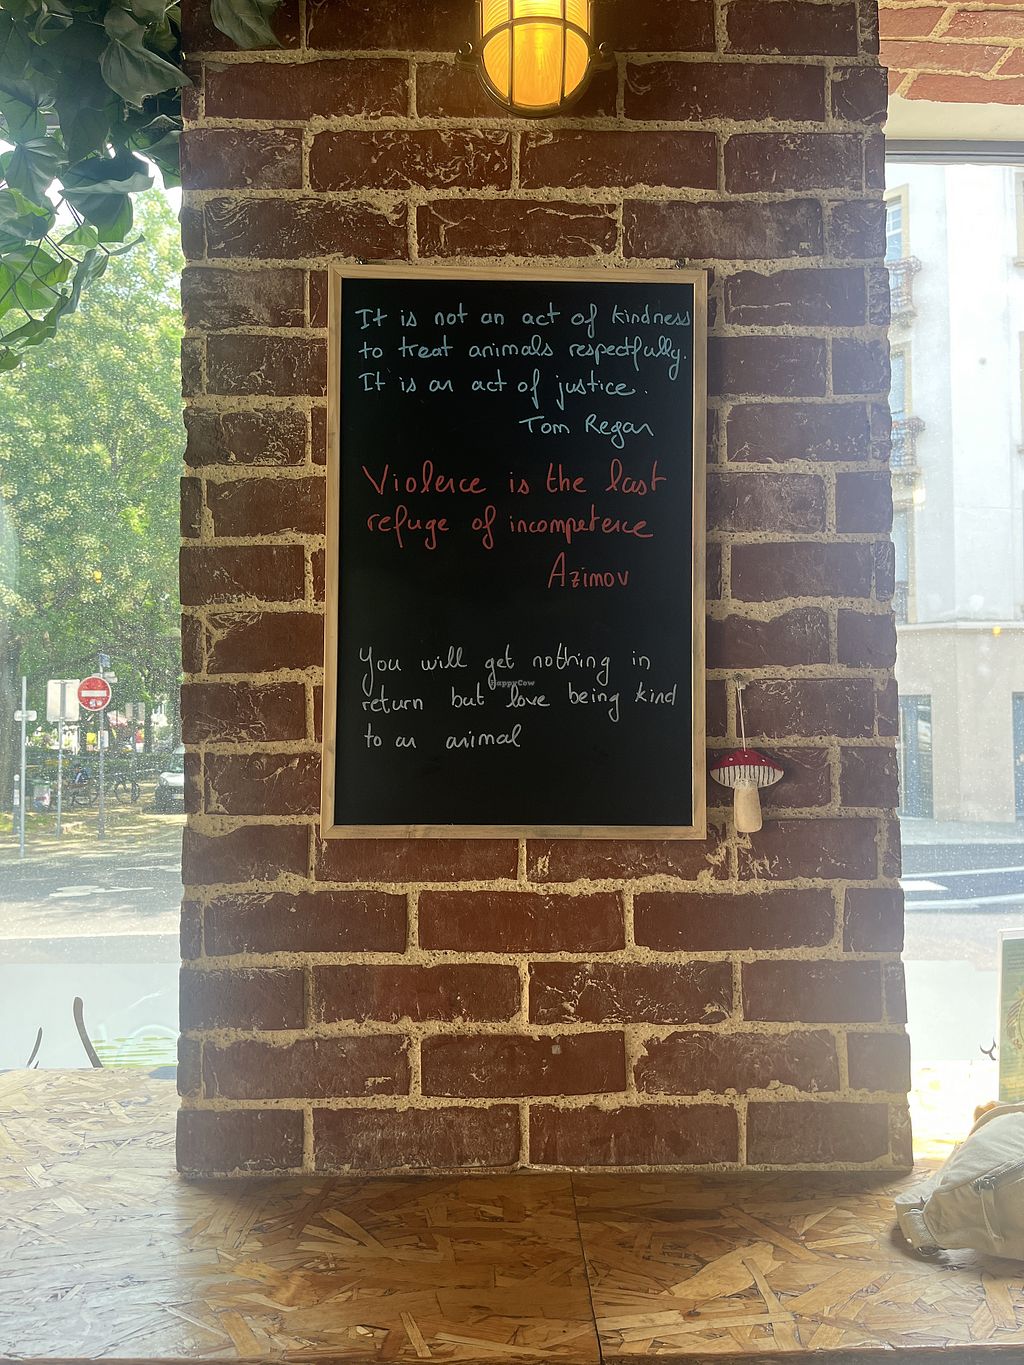 It is not an act of kindness
to treat animals respectfully.
It is an act of justice.
Tom Regan
Violence is the last
refuge of incompetence
Azimov
You will get nothing in
return but love being kind
to an animal
HappyCow